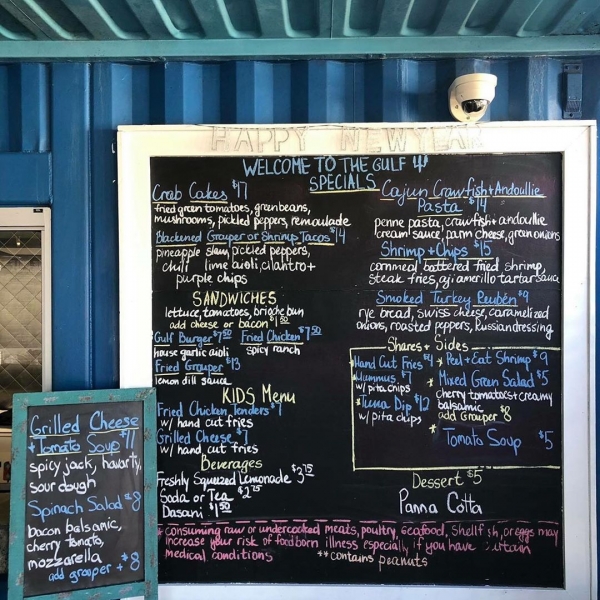 HAPPY NEW YEAR
WELCOME TO THE GULF
SPECIALS
Crab Cakes $17
fried green tomatoes, green beans,
mushrooms, pickled peppers, remoulade
Blackened Grouper or Shrimp Tacos $14
pineapple slaw, pickled peppers,
chili lime aioli, cilantro +
purple chips
Cajun Crawfish + Andoullie
Pasta $14
penne pasta, crawfish + andoullie
cream sauce, parm cheese, green onions
Shrimp + Chips $15
cornmeal battered fried shrimp,
steak fries, aji amarillo tartar sauce
Smoked Turkey Reuben $9
rye bread, swiss cheese, caramelized
onions, roasted peppers, russian dressing
SANDWICHES
lettuce, tomatoes, brioche bun
add cheese or bacon $1.50
Gulf Burger $7.50 Fried Chicken $7.50
house garlic aioli spicy ranch
Fried Grouper $13
lemon dill sauce
KIDS Menu
Fried Chicken Tenders $7
w/ hand cut fries
Grilled Cheese $7
w/ hand cut fries
Beverages
Freshly Squeezed Lemonade $3.75
Soda or Tea $2.75
Dasani $1.50
Shares + Sides
*Hand Cut Fries $4
*Hummus $7
w/ pita chips
*Tuna Dip $12
w/ pita chips
* Peel + Eat Shrimp $9
* Mixed Green Salad $5
cherry tomatoes + creamy
balsamic
add Grouper $8
* Tomato Soup $5
Dessert $5
Panna Cotta
* consuming raw or undercooked meats, poultry, seafood, shellfish, or eggs may
increase your risk of foodborn illness especially if you have certain
medical conditions
** contains peanuts
Grilled Cheese
+ Tomato Soup $11
spicy jack, havarty,
sour dough
Spinach Salad $8
bacon balsanic,
cherry tomato,
mozzarella
add grouper + $8